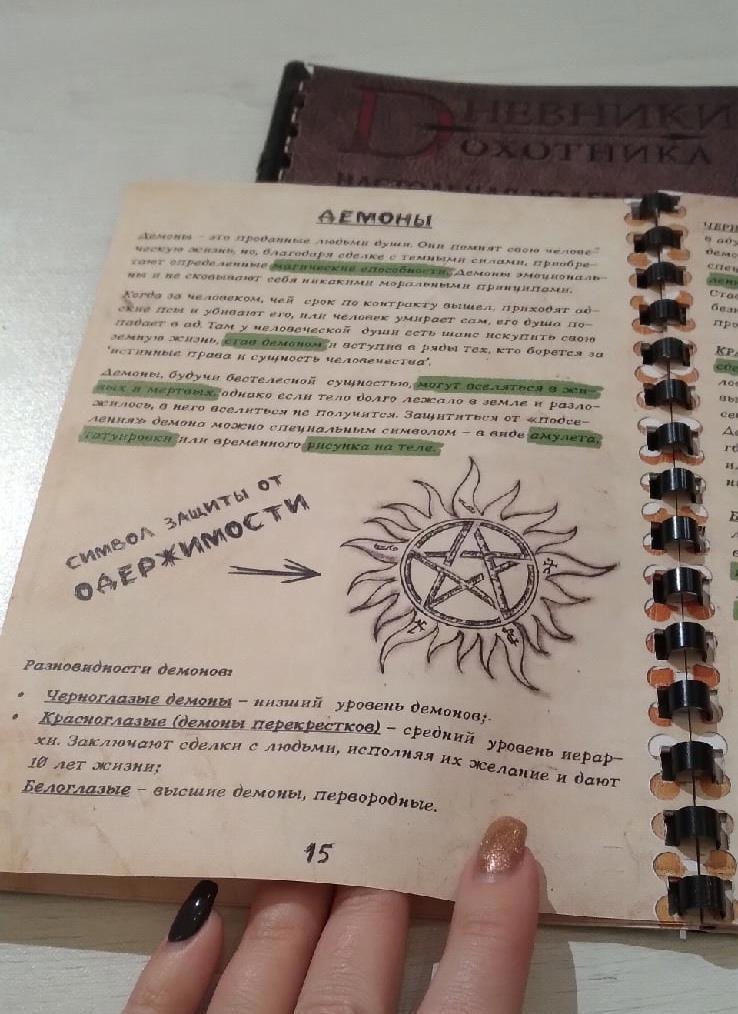 DНЕВНИКИ
ОХОТНИКА
НАСТОЛЬНАЯ
ДЕМОНЫ
Демоны - это проданные людьми души. Они помнят свою челове-
ческую жизнь, но, благодаря сделке с темными силами, приобре-
тают определенные магические способности. Демоны эмоциональ-
ны и не сковывают себя никакими моральными принципами.
Когда за человеком, чей срок по контракту вышел, приходят ад-
ские псы и убивают его, или человек умирает сам, его душа по-
падает в ад. Там у человеческой души есть шанс искупить свою
земную жизнь, став демоном и вступив в ряды тех, кто борется за
'истинные права и сущность человечества'.
Демоны, будучи бестелесной сущностью, могут вселяться в жи-
вых и мертвых, однако если тело долго лежало в земле и разло-
жилось, в него вселиться не получится. Защититься от «Подсе-
ления» демона можно специальным символом – в виде амулета,
татуировки или временного рисунка на теле.
СИМВОЛ ЗАЩИТЫ ОТ
ОДЕРЖИМОСТИ
Разновидности демонов:
• Черноглазые демоны – низший уровень демонов;
• Красноглазые (демоны перекрестков) – средний уровень иерар-
хи. Заключают сделки с людьми, исполняя их желание и дают
10 лет жизни;
Белоглазые – высшие демоны, первородные.
15